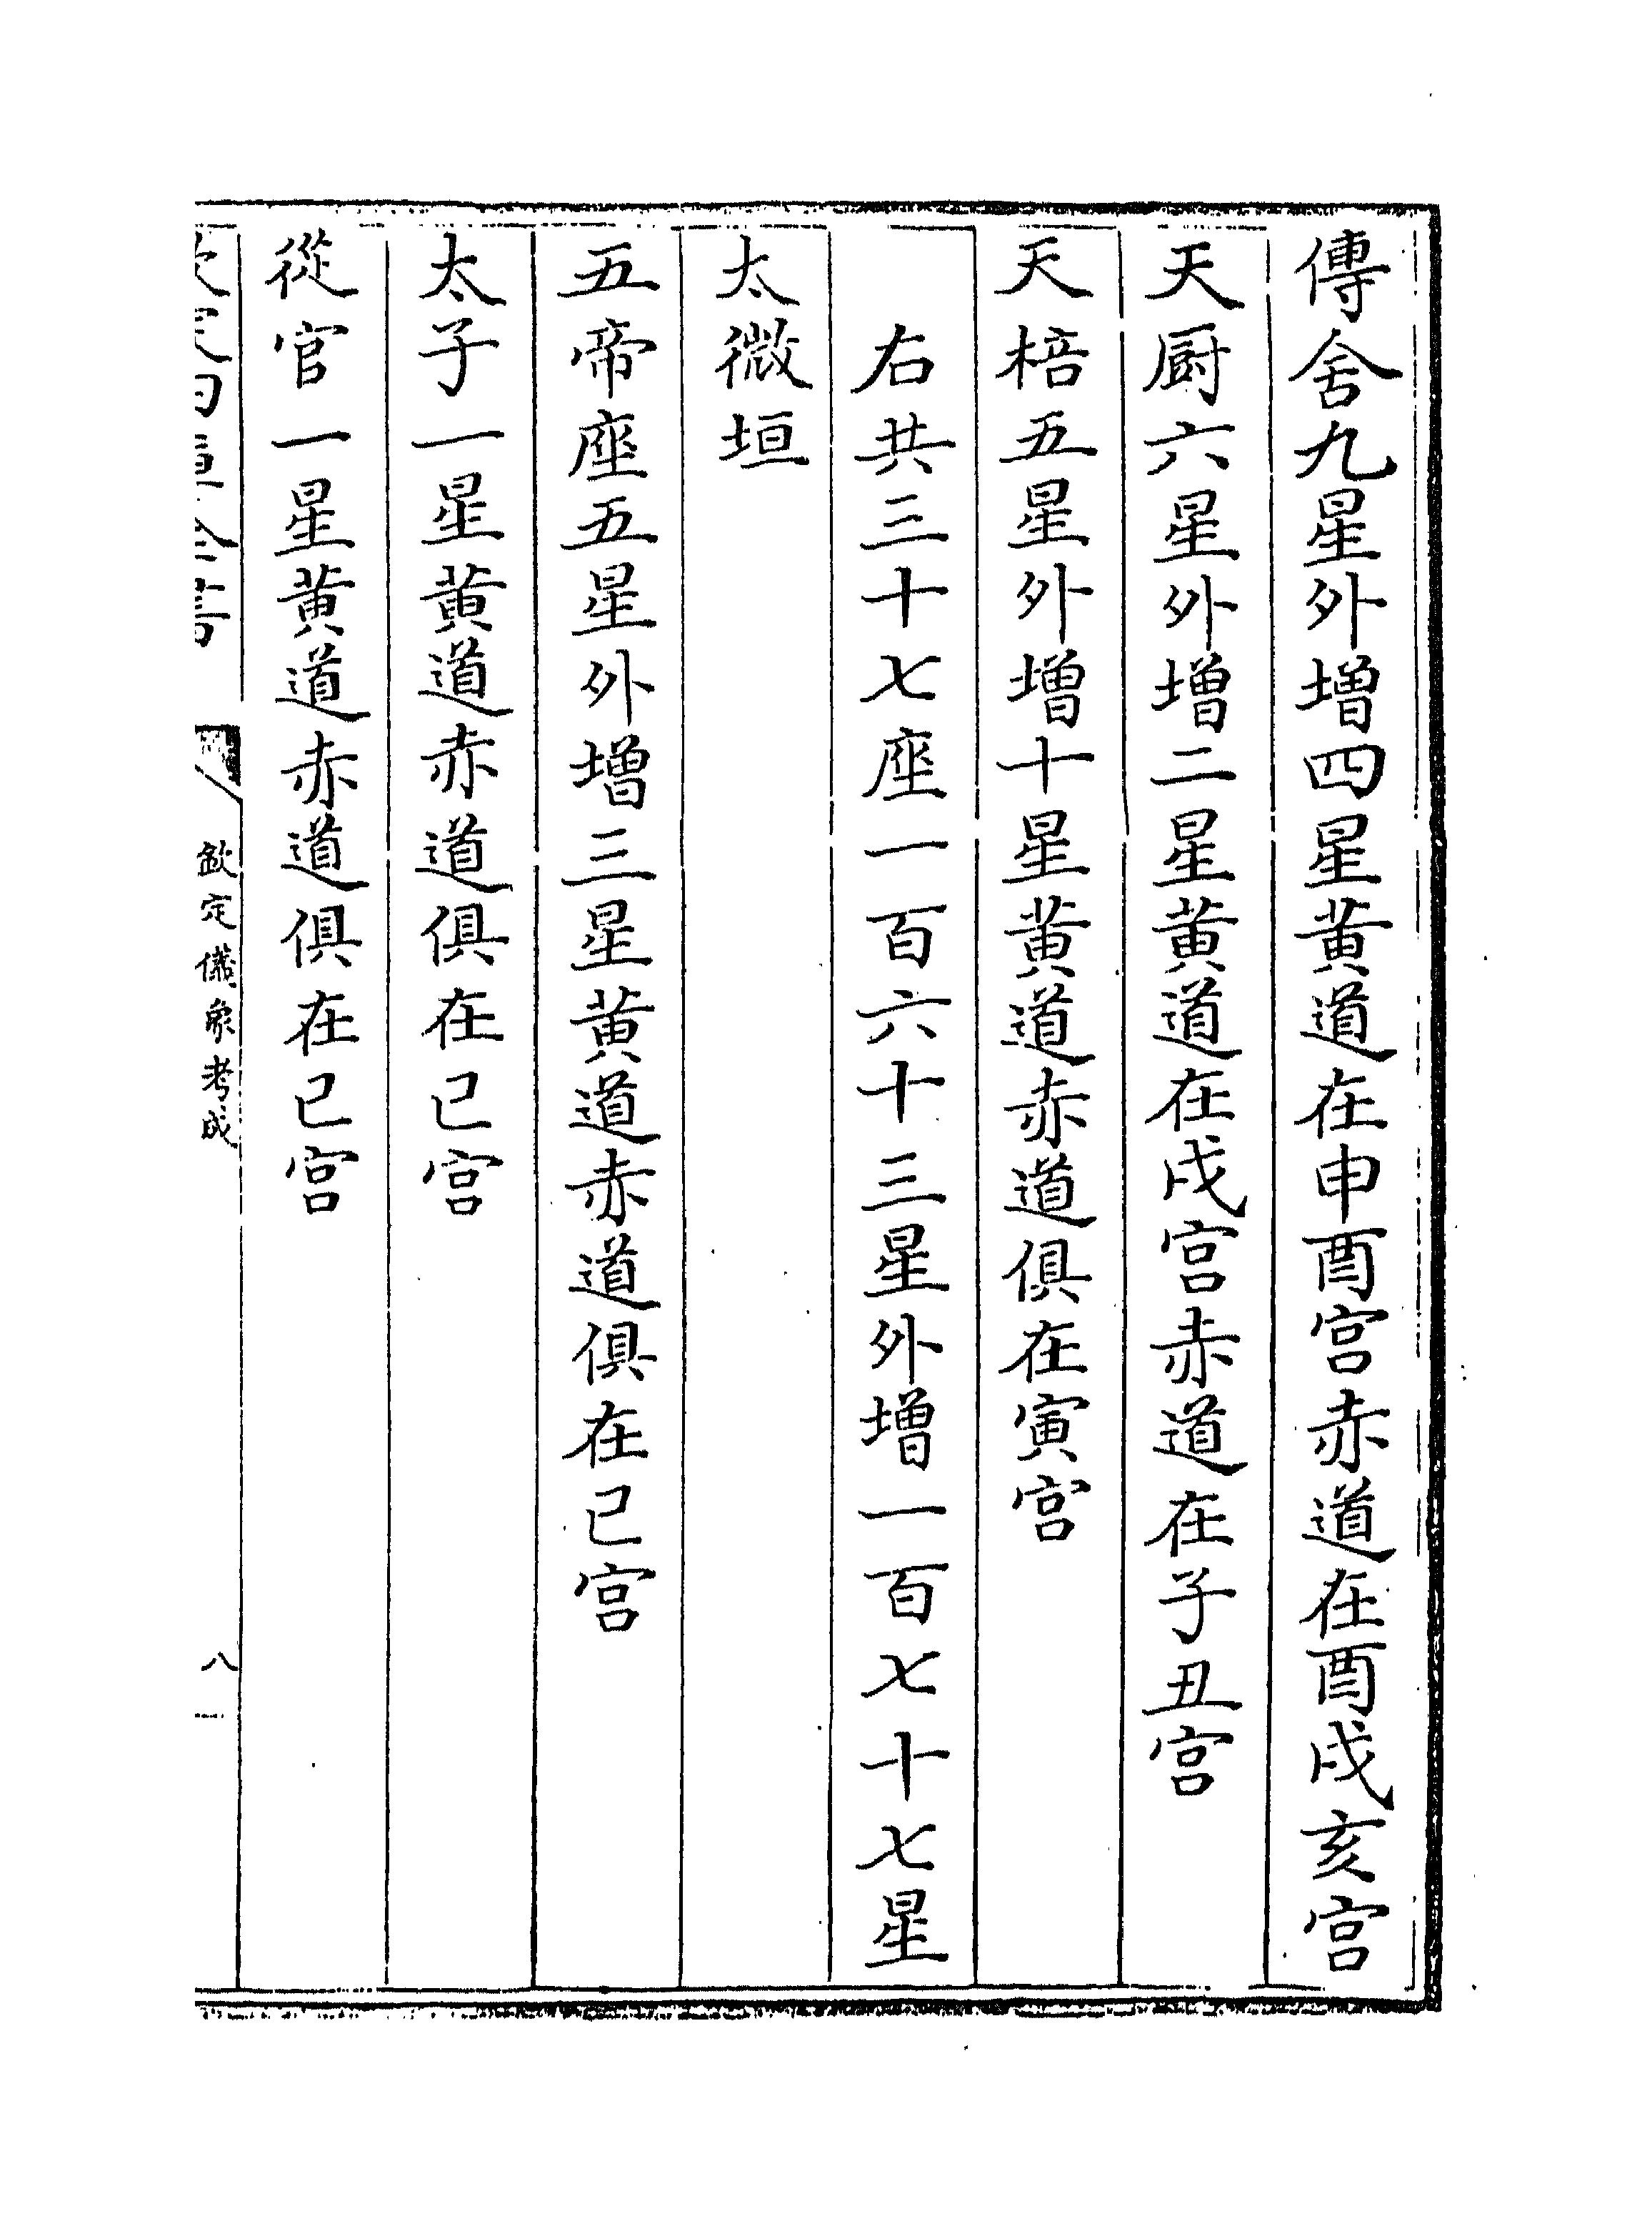 傳舍九星外增四星黄道在申酉宫赤道在酉戌亥宫
天厨六星外增二星黄道在戌宫赤道在子丑宫
天棓五星外增十星黄道赤道俱在寅宫
右共三十七座一百六十三星外增一百七十七星
太微垣
五帝座五星外增三星黄道赤道俱在巳宫
太子一星黄道赤道俱在巳宫
從官一星黄道赤道俱在巳宫
欽定四庫全書
欽定儀象考成
八